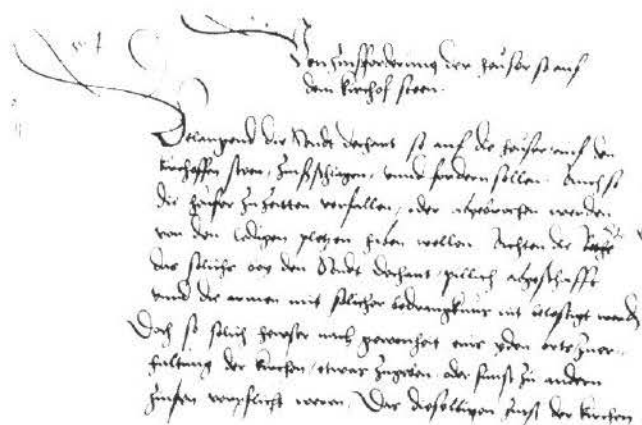 Von Zinsforderung der heuser so auf
dem kirchof steen.
Belangend die Stadt dechant so auf die heuser auf den
kirchoffen steen, Zinß schlagen, unnd fordern sollen. Auch so
die heuser Zuzeitten verfallen, oder abgebrochen werden
von den ledigen pletzen haben wollen. Achten die
das soliche von den Stadt dechant, pillich abgeschafft
unnd die armen mit solicher bedrangknus nit belestigt werden
Doch so solich hewser nach gewonheit eins yden orts zuer-
haltung der kirchen, etwas zugeben oder sunst zu andern
Zinsen verpflicht weren, Das dieselbigen Zinß der kirchen